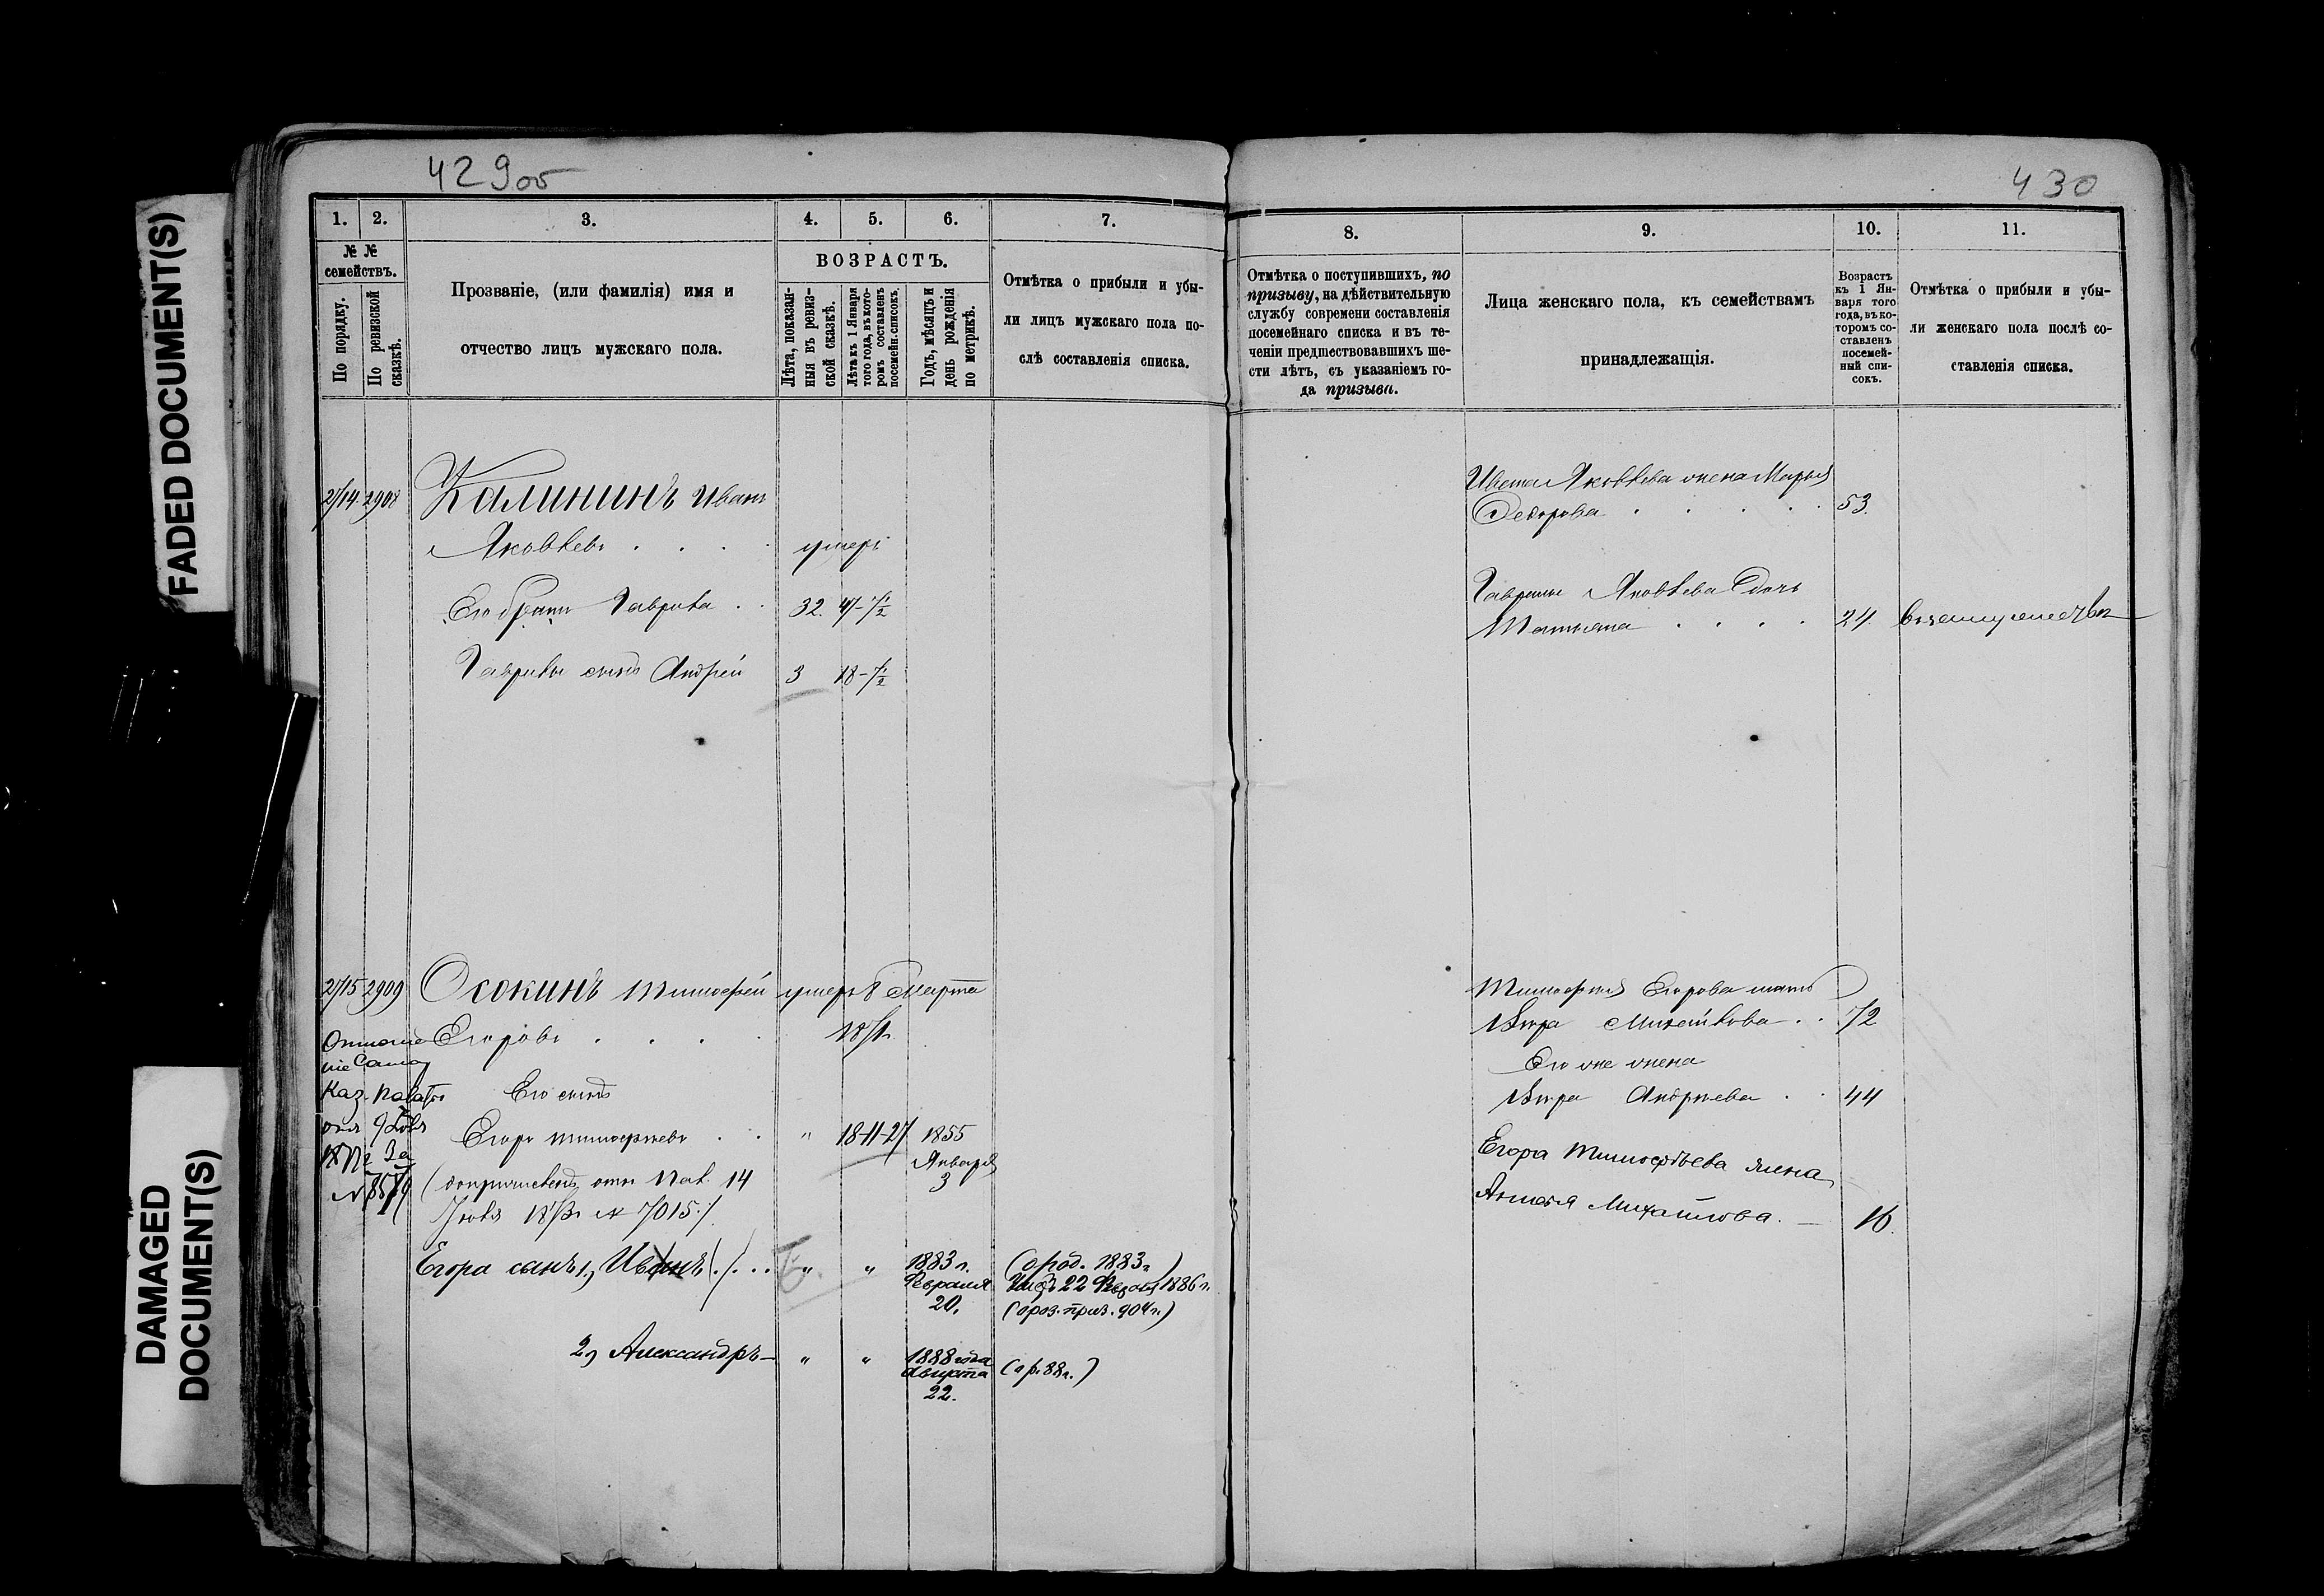 FADED DOCUMENT(S)
DAMAGED
DOCUMENT(S)
429об
1.
2.
3.
4.
5.
6.
7.
№ №
семействъ.
По порядку.
По ревизской
сказкѣ.
Прозваніе, (или фамилія) имя и
отчество лицъ мужскаго пола.
ВОЗРАСТЪ.
Лѣта, показан-
ныя въ ревиз-
ской сказкѣ.
Лѣта къ 1 Января
того года, въ кото-
ромъ составленъ
посемейн. списокъ.
Годъ, мѣсяцъ и
день рожденія
по метрикѣ.
Отмѣтка о прибыли и убы-
ли лицъ мужскаго пола по-
слѣ составленія списка.
2714 2908 Калининъ Иванъ
Яковлевъ . . . . умеръ
Его братъ Гаврила . . 32. 47-1/2
Гаврилы сынъ Андрей 3 18-1/2
2715 2909 Осокинъ Тимофей умеръ 8 Марта
Егоровъ . . . . 1871г.
Каз. Палаты
Его сынъ
Егоръ Тимофѣевъ . . " 18-11-27 1855
Января
3
№ 8579
14
Іюля № 7015
Егора сынъ 1, Иванъ . . . " " 1883 г.
Февраля
20.
(о род. 1883г.)
22 1886 г.
(о роз. приз. 904 г.)
2, Александръ — " " 1888 года
Августа
22.
(о р. 88г.)
430
8.
9.
10.
11.
Отмѣтка о поступившихъ, по
призыву, на дѣйствительную
службу современи составленія
посемейнаго списка и въ те-
ченіи предшествовавшихъ ше-
сти лѣтъ, съ указаніемъ го-
да призыва.
Лица женскаго пола, къ семействамъ
принадлежащія.
Возрастъ
къ 1 Ян-
варя того
года, въ ко-
торомъ со-
ставленъ
посемей-
ный спи-
сокъ.
Отмѣтка о прибыли и убы-
ли женскаго пола послѣ со-
ставленія списка.
Ивана Яковлева жена Марья
Федорова . . . . . 53.
Гаврилы Яковлева дочь
Татьяна . . . . 24. въ замужествѣ
Тимофея Егорова мать
Вѣра Михайлова . . 72
Его же жена
Вѣра Андрѣева . . 44
Егора Тимофѣева жена
Михайлова. — 16.